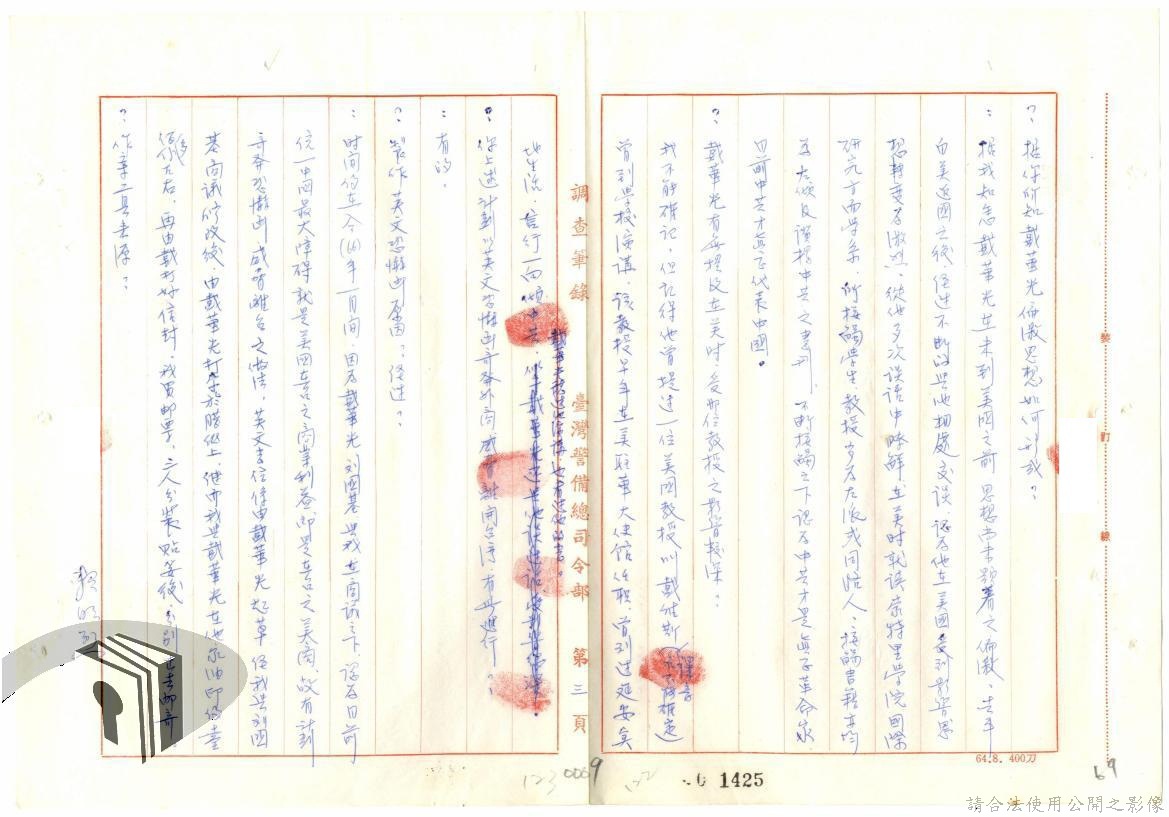 ？據你所知戴華光偏激思想如何形成？
：據我知悉戴華光在未到美國之前思想尚未顯著之偏激、去年
由美返國之後、經過不斷的與他相處交談、認為他在美國受到影響思
想轉變為激烈、從他多次談話中瞭解、在美時就讀蒙特里學院國際
研究方面學系、所接觸學生、教授多為左派或同路人、接觸書籍亦均
為左傾及讚揚中共之書刊、不斷接觸之下認為中共才是真正革命家
目前中共才真正代表中國。
？戴華光有無提及在美時、受那位教授之影響較深？
我不能確記、但記得他曾提過一位美國教授叫戴維斯（譯音不能確定）
曾到學校演講、該教授早年在美駐華大使館任職曾到過延安與
戴華光接近他演講、也看過他的書。
？你上述計劃以英文恐嚇函寄發外商威脅離開台灣、有無進行？
：有的。
？製作英文恐嚇函原因？經過？
：時間約在今(66)年一月間、因為戴華光劉國基與我在商議之下、認為目前
統一中國最大障碍就是美國在台之商業利益、即是在台之美商、故有計劃
寄發恐嚇函威脅離台之做法、英文書信係由戴華光起草經我與劉國
基商議修改後、由戴華光打在蠟紙上、繼而我與戴華光在他家油印約壹
佰份左右、再由戴打好信封、我買郵票、三人分裝貼妥後、分別至各郵寄
？作案工具來源？
賴明烈
調查筆錄
臺灣警備總司令部
第三頁
裝
訂
線
64.8. 400刀
1425
0009
123
69
請合法使用公開之影像